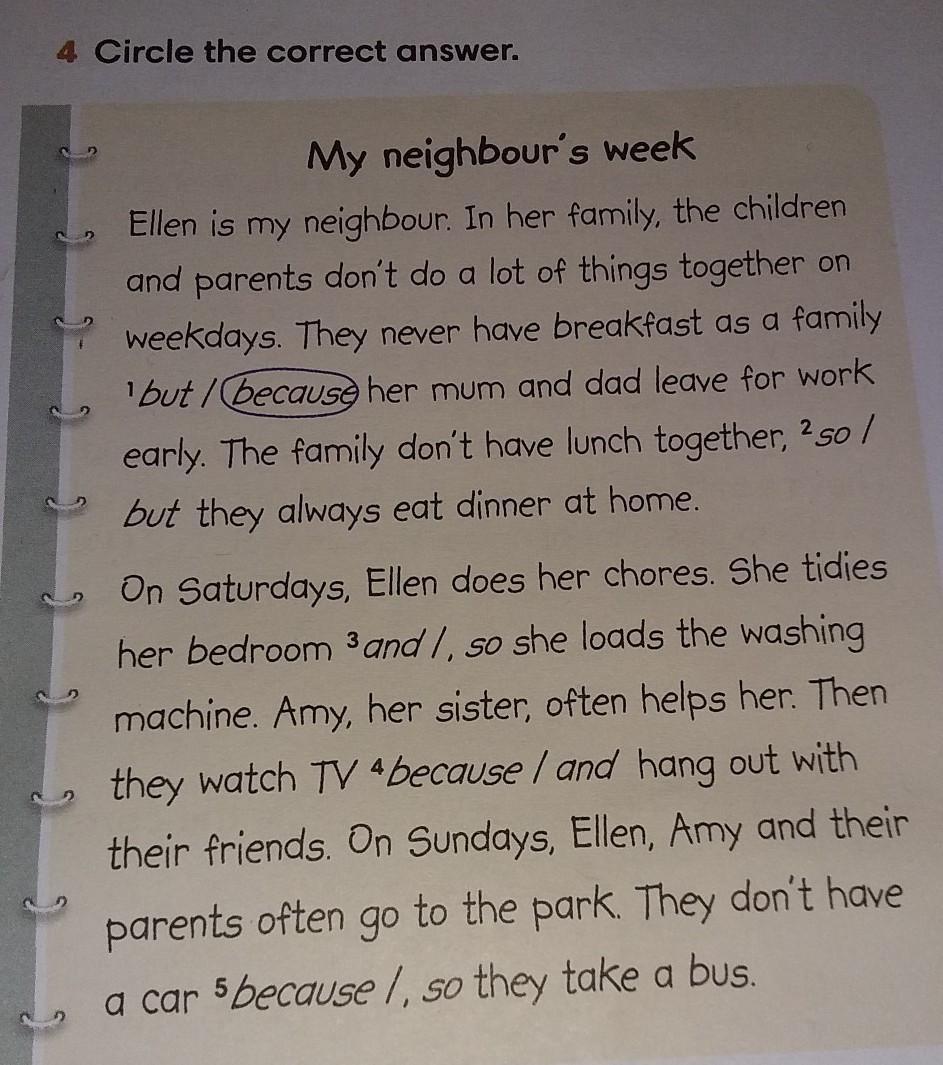 4 Circle the correct answer.
My neighbour's week
Ellen is my neighbour. In her family, the children
and parents don't do a lot of things together on
weekdays. They never have breakfast as a family
¹but / because her mum and dad leave for work
early. The family don't have lunch together, ²so /
but they always eat dinner at home.
On Saturdays, Ellen does her chores. She tidies
her bedroom ³and /, so she loads the washing
machine. Amy, her sister, often helps her. Then
they watch TV ⁴because / and hang out with
their friends. On Sundays, Ellen, Amy and their
parents often go to the park. They don't have
a car ⁵because /, so they take a bus.